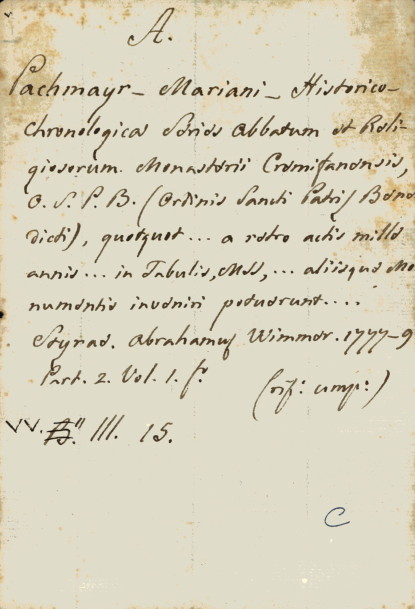 A.
Pachmayr – Mariani – Historico-
chronologica Series Abbatum et Reli-
giosorum Monasterii Cremifanensis,
O. S. P. B. (Ordinis Sancti Patris Bene
dicti), quotquot ... a retro actis mille
annis ... in Tabulis, Mss, ... aliisque Mo
numentis inveniri potuerunt ....
Styrae. Abrahamus Wimmer. 1777–9
Part. 2. Vol. 1. fº.
III. 15.
C